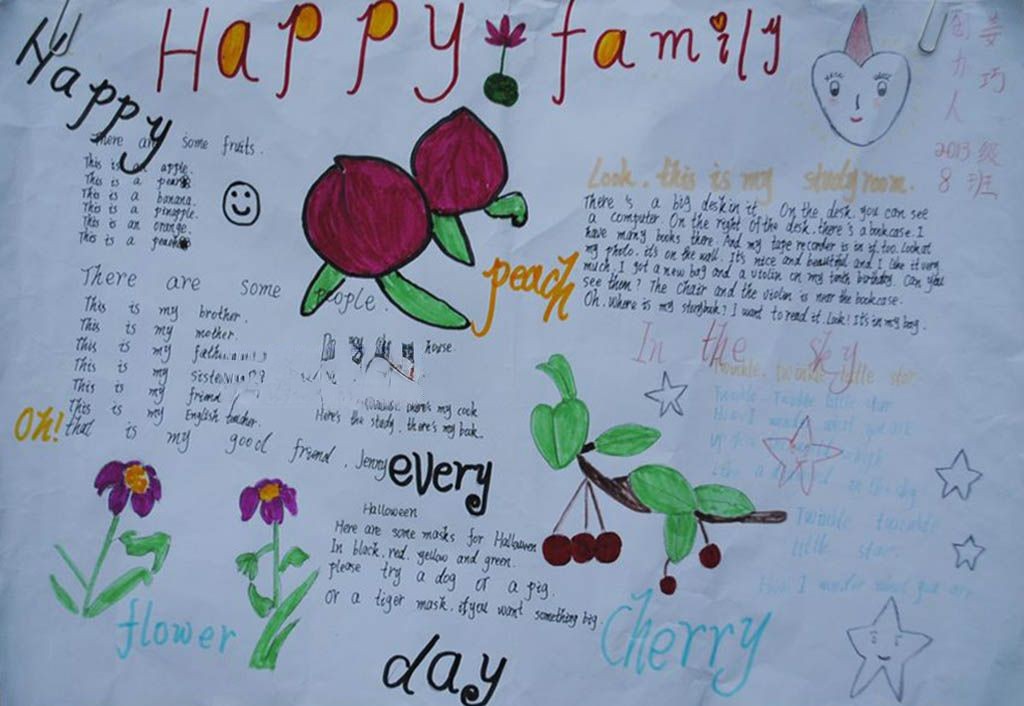 Happy family
Happy
There are some fruits.
This is an apple.
This is a pear
This is a banana.
This is a pinapple.
This is an orange.
This is a peach
There are some people.
This is my brother.
This is my mother.
This is my
This is my
This is my friend
This is my English teacher.
Oh! that is my good friend, Jenny
house.
Here's the study, there's my book.
peach
every
Halloween
Here are some masks for Halloween
In black, red, yellow and green.
please try a dog or a pig.
Or a tiger mask, if you want something big.
day
flower
Cherry
姜巧
创办人
2013级
8班
Look, this is my study room.
There's a big desk in it. On the desk, you can see
a computer. On the right of the desk, there's a bookcase. I
have many books there. And my tape recorder is in it, too. Look at
my photo, it's on the wall. It's nice and beautiful and I like it very
much. I got a new bag and a violin on my tenth birthday. Can you
see them? The chair and the violin is near the bookcase.
Oh, where is my storybook? I want to read it. Look! It's in my bag.
In the sky
Twinkle, twinkle little star
Twinkle Twinkle little star
How I wonder what you are
Twinkle twinkle
little star
How I wonder what you are